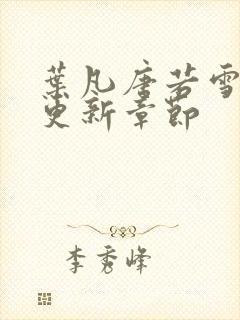 葉凡唐若雪
更新章節
李秀峰